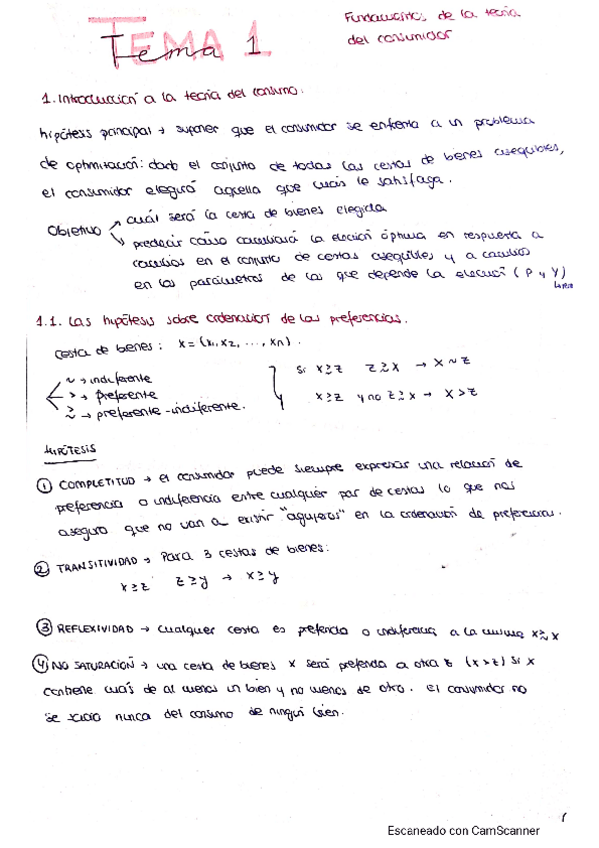 Tema 1
TEMA 1
Fundamentos de la teoría
del consumidor
1. Introducción a la teoría del consumo.
hipótesis principal → suponer que el consumidor se enfrenta a un problema
de optimización: dado el conjunto de todas las cestas de bienes asequibles,
el consumidor elegirá aquella que más le satisfaga.
Objetivo
cuál será la cesta de bienes elegida
predecir cómo cambiará la elección óptima en respuesta a
cambios en el conjunto de cestas asequibles y a cambios
en los parámetros de los que depende la elección (P y Y)
1.1. Las hipótesis sobre ordenación de las preferencias.
cesta de bienes: x = (x₁, x₂, ..., xn).
~ → indiferente
> → preferente
≳ → preferente-indiferente.
Si x ≳ z   z ≳ x → x ~ z
x ≳ z y no z ≳ x → x > z
HIPÓTESIS
① COMPLETITUD → el consumidor puede siempre expresar una relación de
preferencia o indiferencia entre cualquier par de cestas lo que nos
asegura que no van a existir "agujeros" en la ordenación de preferencias.
② TRANSITIVIDAD → Para 3 cestas de bienes:
x ≳ z   z ≳ y → x ≳ y
③ REFLEXIVIDAD → cualquier cesta es preferida o indiferencia a la misma x ≳ x
④ NO SATURACIÓN → una cesta de bienes x será preferida a otra z (x > z) si x
contiene más de al menos un bien y no menos de otro. El consumidor no
se sacia nunca del consumo de ningún bien.
1
Escaneado con CamScanner